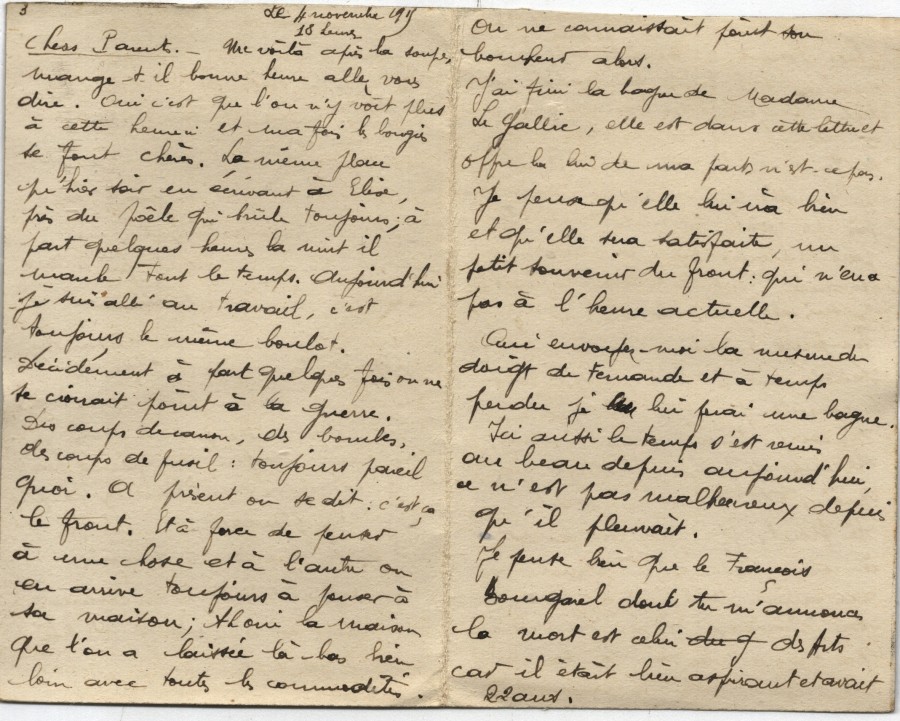 3
Le 4 novembre 1915
18 heures
Chers Parents. – Me voità après la soupe,
mange t-il bonne heure allez vous
dire. Oui c'est que l'on n'y voit plus
à cette heure ci et ma fois les bougies
se font chères. La même place
qu'hier soir en écrivant à Elise,
près du poêle qui brûle toujours; à
part quelques heures la nuit il
marche tout le temps. Aujourd'hui
je suis allé au travail, c'est
toujours le même boulot.
Décidément à part quelques fois on ne
se croirait point à la guerre.
Des coups de canon, des bombes,
des coups de fusil : toujours pareil
quoi. A présent on se dit : c'est ça
le front. Et à force de penser
à une chose et à l'autre on
en arrive toujours à penser à
sa maison; Ah oui la maison
que l'on a laissée là-bas bien
loin avec toutes les commodités.
On ne connaissait point son
bonheur alors.
J'ai fini la bague de Madame
Le Gallic, elle est dans cette lettre et
offre la lui de ma part n'est-ce pas.
Je pense qu'elle lui ira bien
et qu'elle sera satisfaite, un
petit souvenir du front : qui n'en a
pas à l'heure actuelle.
Oui envoyez-moi la mesure du
doigt de Fernande et à temps
perdu je lui ferai une bague.
Ici aussi le temps s'est remis
au beau depuis aujourd'hui,
ce n'est pas malheureux depuis
qu'il pleuvait.
Je pense bien que le François
dont tu m'annonces
la mort est celui du q des Arts
car il était bien aspirant et avait
22 ans.